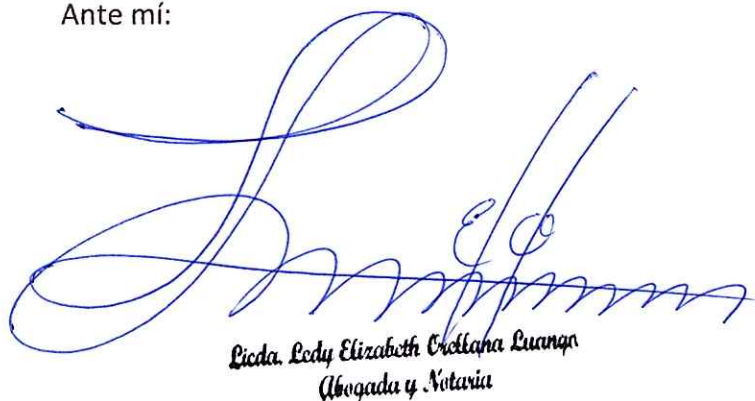 Ante mí:
E O
Licda. Ledy Elizabeth Orellana Luango
Abogada y Notaria